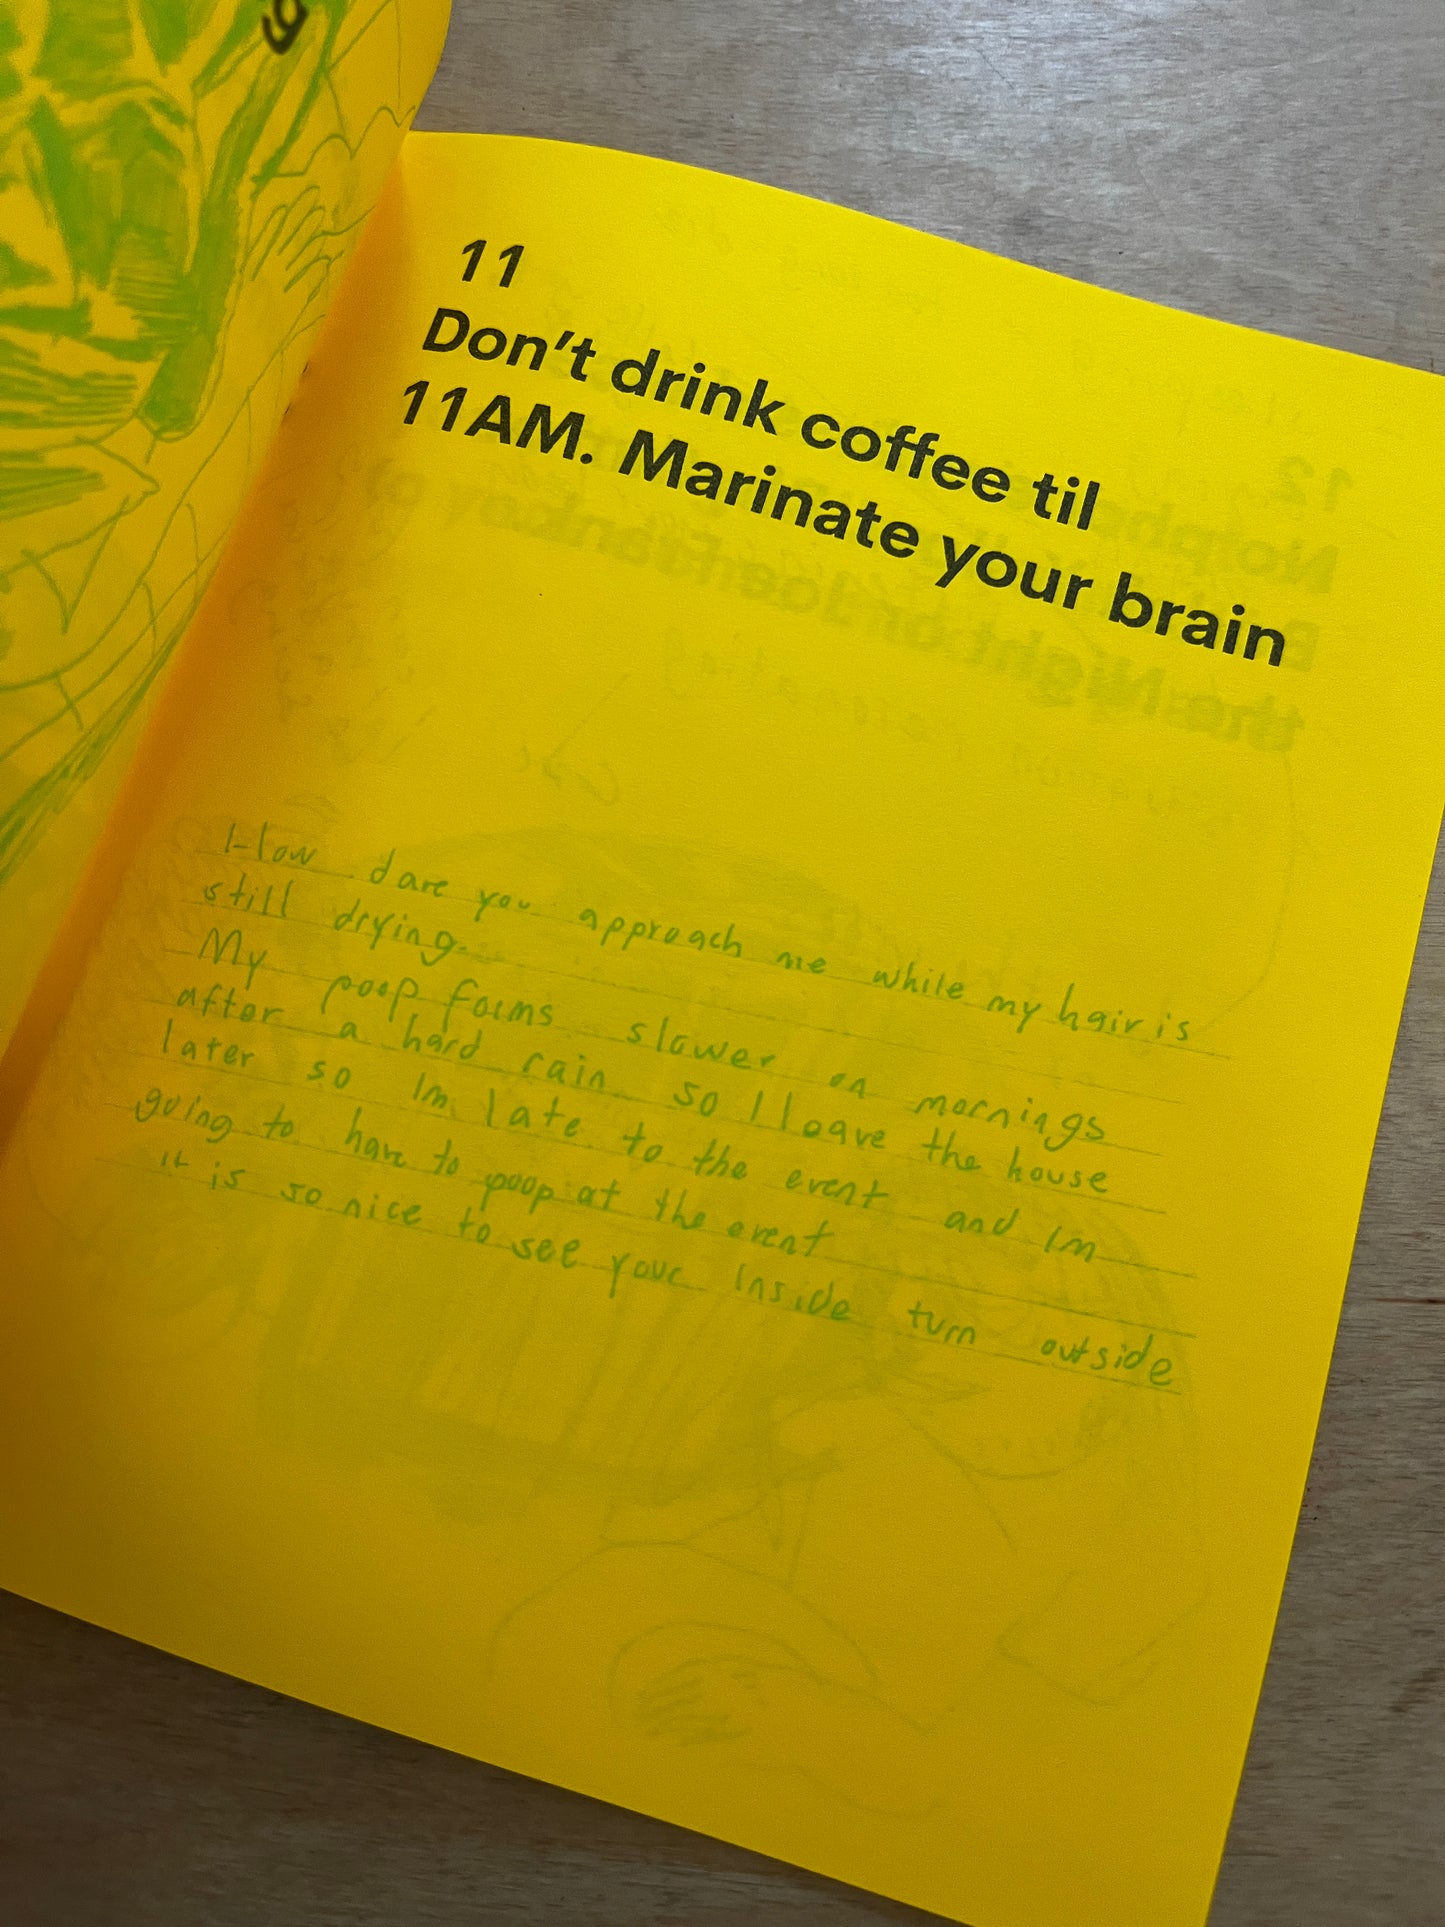 11
Don't drink coffee til
11AM. Marinate your brain
How dare you approach me while my hair is
still drying.
My poop forms slower on mornings
after a hard rain so I leave the house
later so Im late to the event and Im
going to have to poop at the event
it is so nice to see your inside turn outside